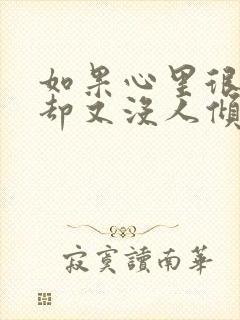 如果心里很
却又没人倾
寂寞讀南華